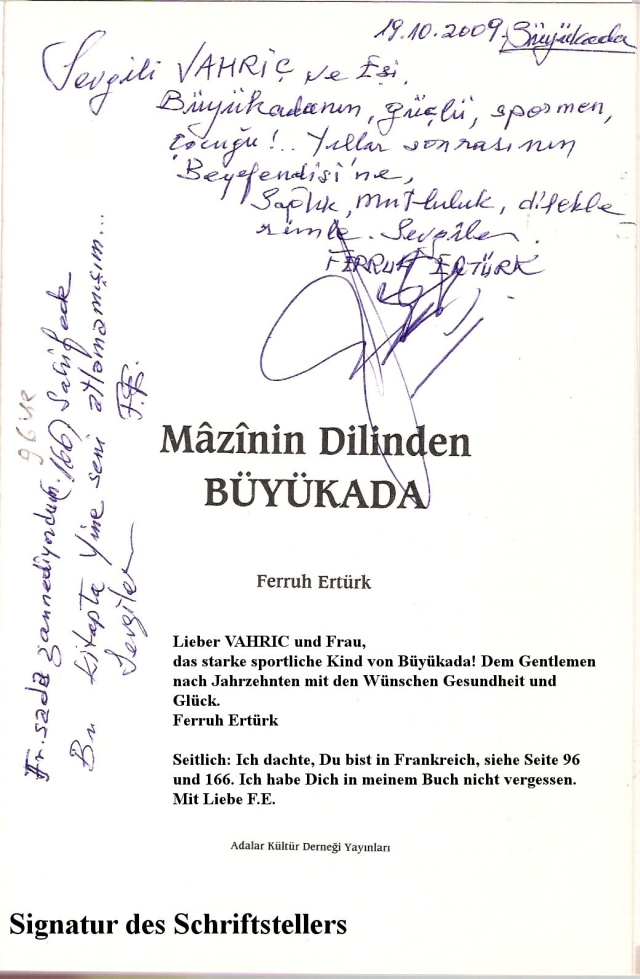 19.10.2009, Büyükada
Sevgili VAHRİÇ ve Eşi,
Büyükadanın, güçlü, spormen,
çocuğu!.. Yıllar sonrasının
Beyefendisi'ne,
Sağlık, mutluluk, dilekle-
rimle. Sevgiler.
FERRUH ERTÜRK
Fr.sada zannediyordum. 96 ve (166) Sahifede
Bu kitapta yine seni atlamamışım...
Sevgiler F.E.
Mâzînin Dilinden
BÜYÜKADA
Ferruh Ertürk
Lieber VAHRIC und Frau,
das starke sportliche Kind von Büyükada! Dem Gentlemen
nach Jahrzehnten mit den Wünschen Gesundheit und
Glück.
Ferruh Ertürk
Seitlich: Ich dachte, Du bist in Frankreich, siehe Seite 96
und 166. Ich habe Dich in meinem Buch nicht vergessen.
Mit Liebe F.E.
Adalar Kültür Derneği Yayınları
Signatur des Schriftstellers